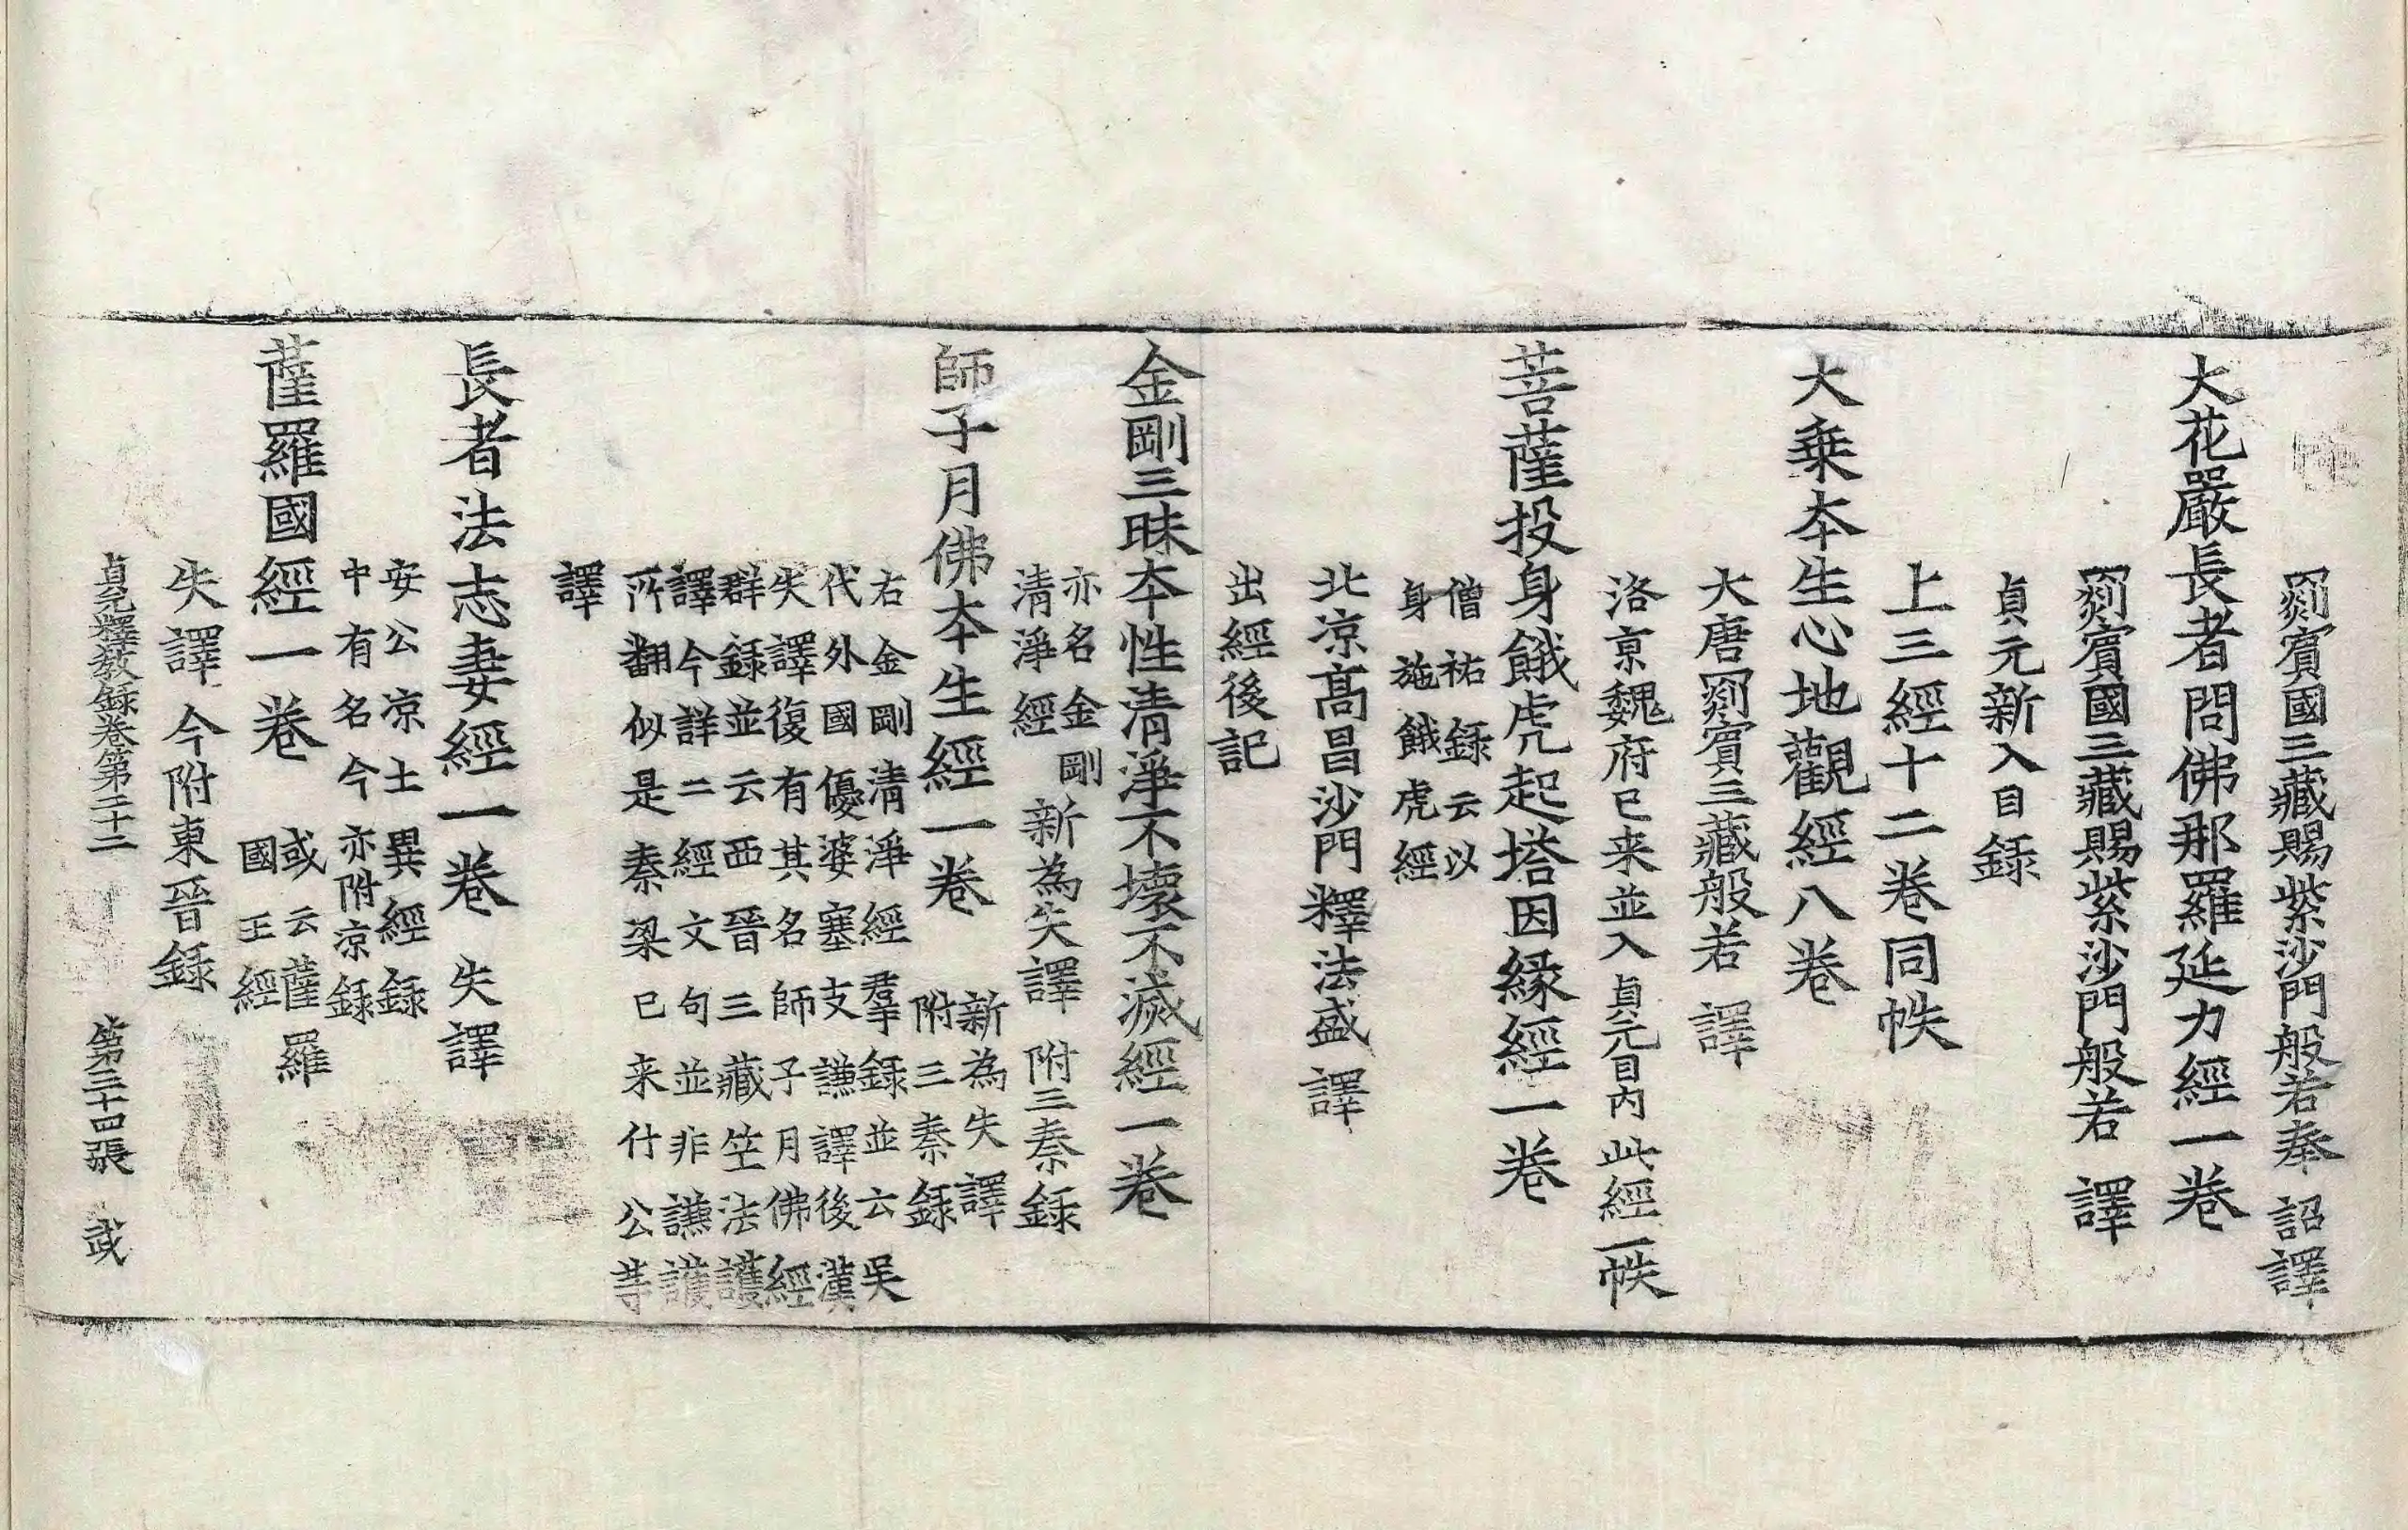 罽賓國三藏賜紫沙門般若奉 詔譯
大花嚴長者問佛那羅延力經一卷
罽賓國三藏賜紫沙門般若 譯
貞元新入目錄
上三經十二卷同帙
大乗本生心地觀經八卷
大唐罽賓三藏般若 譯
洛京魏府已来並入貞元目內 此經一帙
菩薩投身餓虎起塔因緣經一卷
僧祐錄云以
身施餓虎經
北涼髙昌沙門釋法盛 譯
出經後記
金剛三昧本性清淨不壞不滅經一卷
亦名金剛
清淨經
新為失譯 附三秦錄
師子月佛本生經一卷
新為失譯
附三秦錄
右金剛清淨經羣錄並云吴
代外國優婆塞支謙譯後漢
失譯復有其名師子月佛經
群錄並云西晉三藏竺法護
譯今詳二經文句並非謙護
所翻似是秦梁已来什公等
譯
長者法志妻經一卷 失譯
安公凉土異經錄
中有名今亦附凉錄
薩羅國經一卷
或云薩羅
國王經
失譯今附東晉錄
貞元釋教錄卷第二十二 第三十四張 武